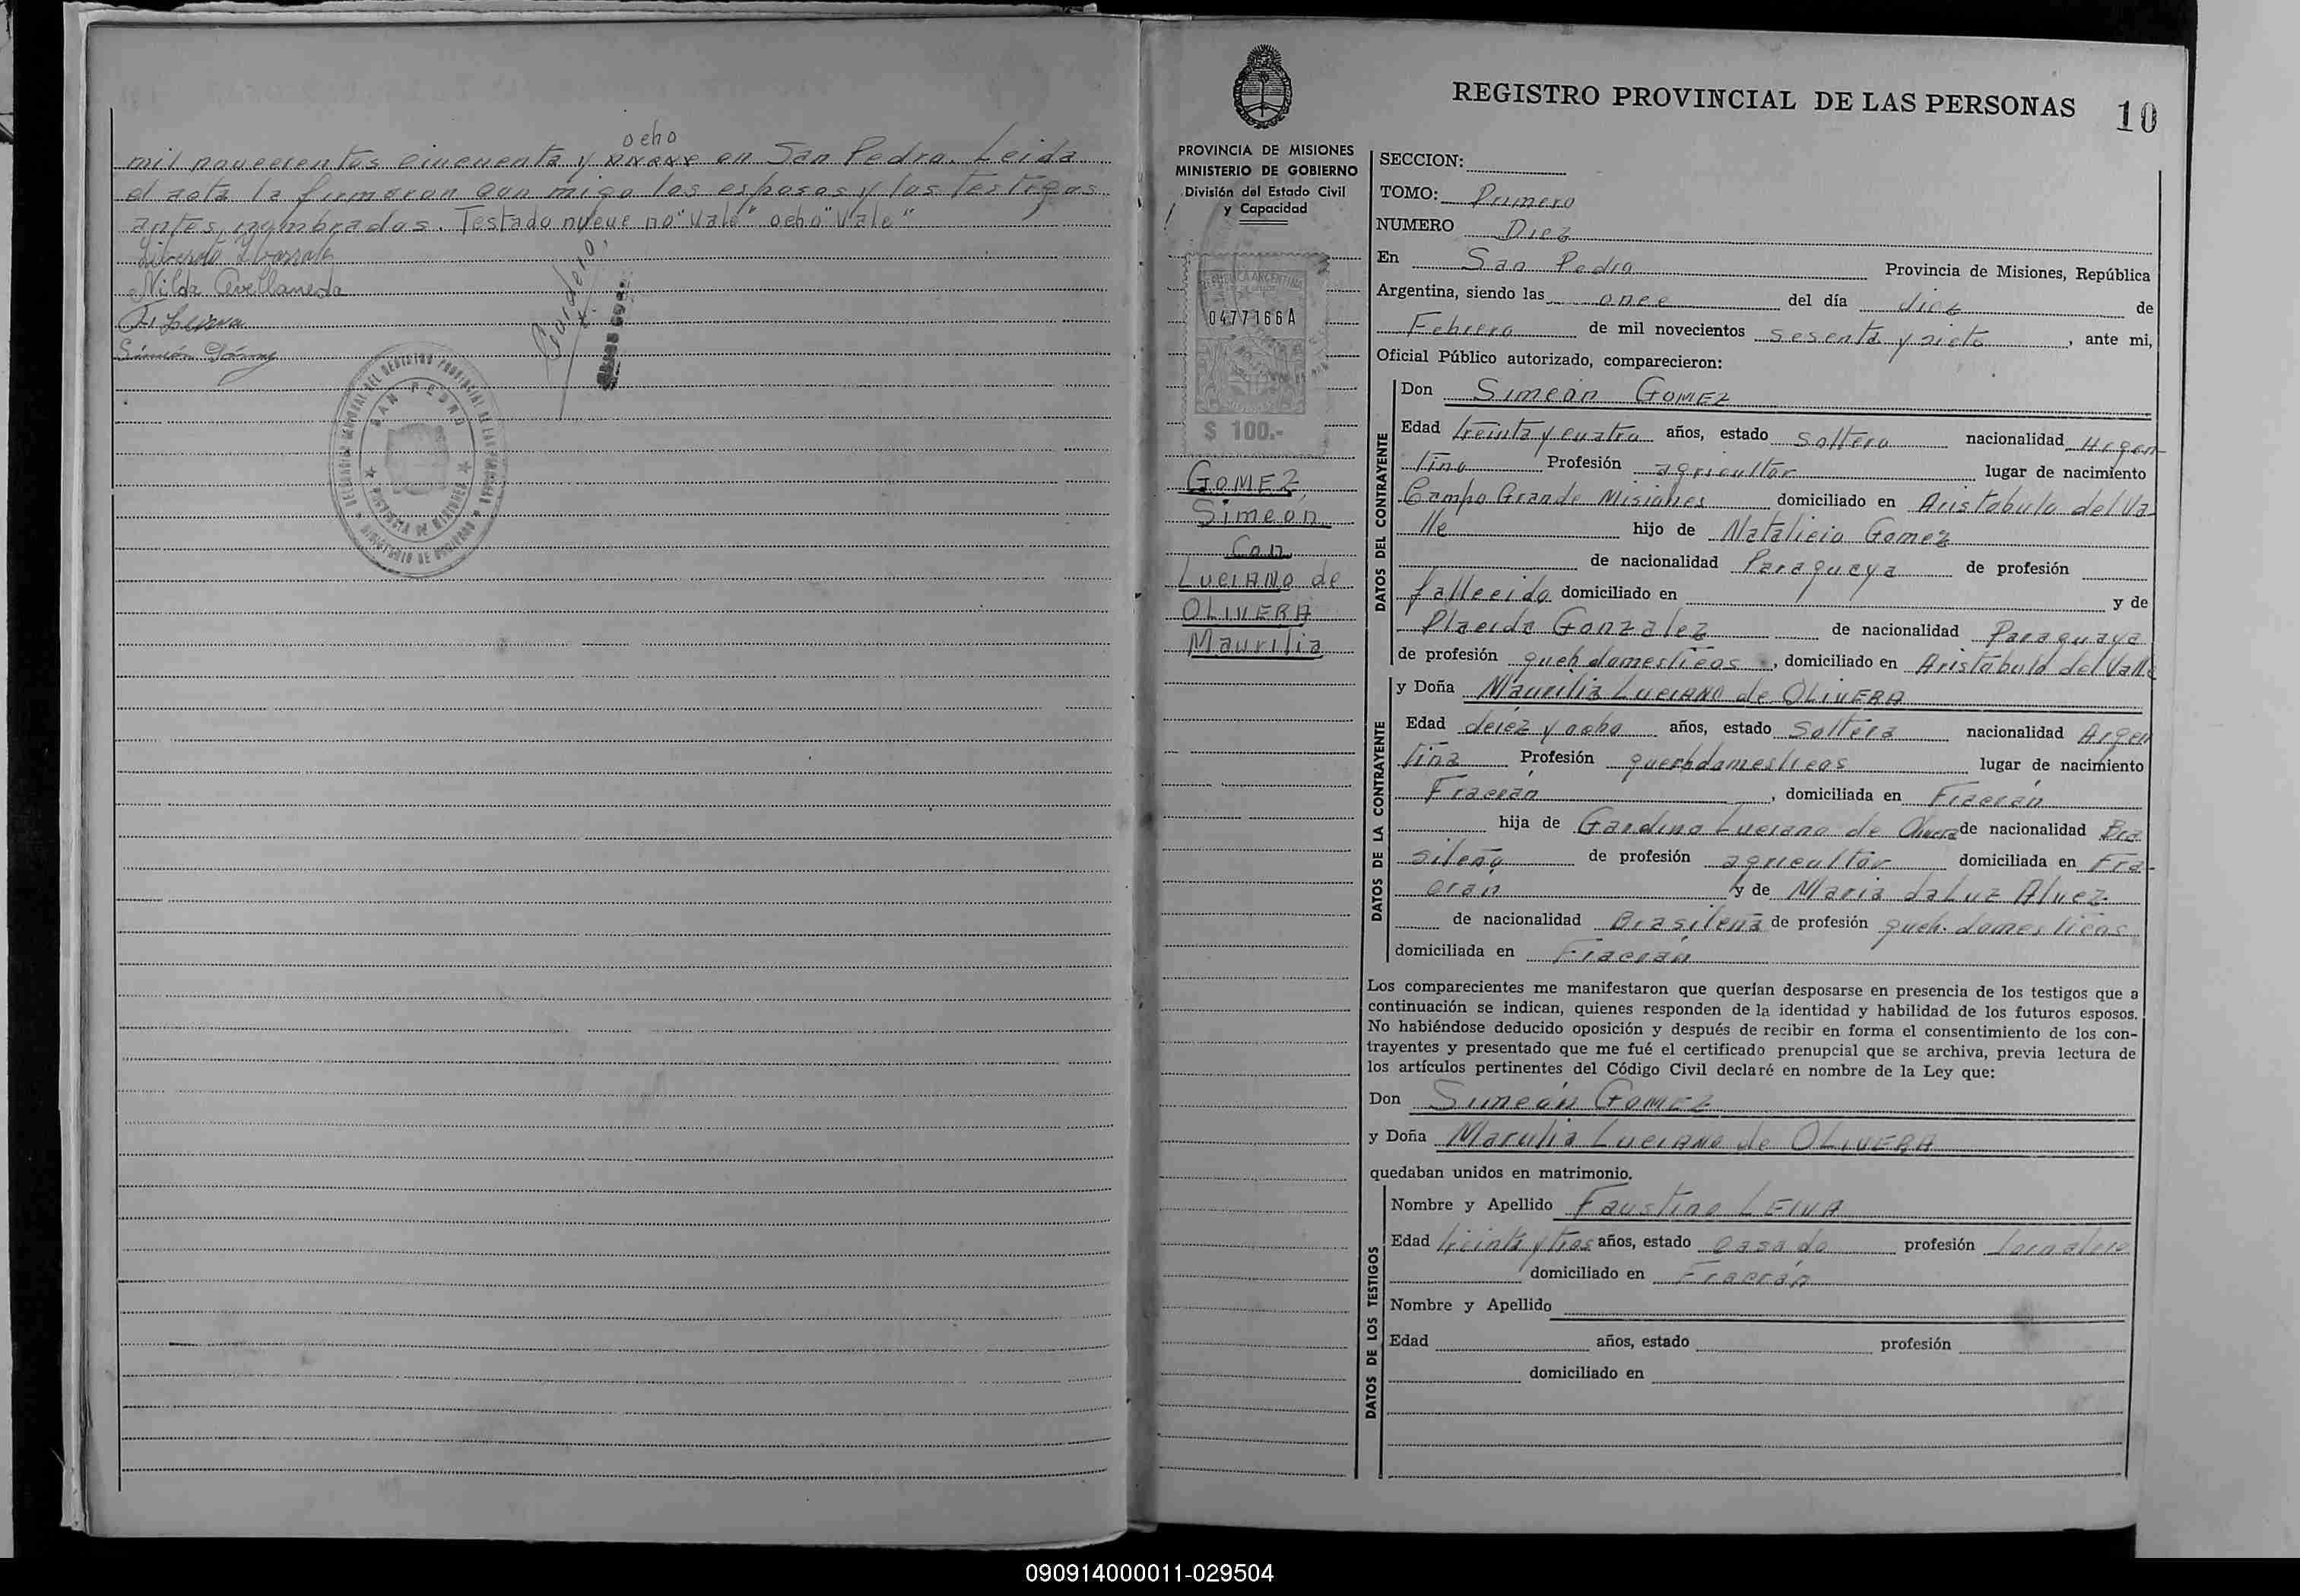 ocho
mil novecientos cincuenta y en San Pedro. Leida
el acta la firmaron con migo los esposos y los testigos
antes nombrados. Testado nueve no "Vale" ocho "Vale"
Nilda Avellaneda
Simeón Gómez
SAN PEDRO
REGISTRO PROVINCIAL DE LAS PERSONAS 10
PROVINCIA DE MISIONES
MINISTERIO DE GOBIERNO
División del Estado Civil
y Capacidad
REPUBLICA ARGENTINA
0477166A
$ 100.-
GOMEZ,
Simeon
Con
LUCIANO de
OLIVERA
Maurilia
SECCION:
TOMO: Primero
NUMERO Diez
En San Pedro Provincia de Misiones, República
Argentina, siendo las once del día diez de
Febrero de mil novecientos sesenta y siete, ante mi,
Oficial Público autorizado, comparecieron:
DATOS DEL CONTRAYENTE
Don Simeón GOMEZ
Edad treinta y cuatro años, estado soltero nacionalidad Argen
tino Profesión agricultor lugar de nacimiento
Campo Grande Misiones domiciliado en Aristobulo del Va-
lle hijo de Natalicio Gomez
de nacionalidad Paraguaya de profesión
fallecido domiciliado en y de
Placida Gonzalez de nacionalidad Paraguaya
de profesión queh. domesticos, domiciliado en Aristobulo del Valle
DATOS DE LA CONTRAYENTE
y Doña Maurilia LUCIANO de OLIVERA
Edad deiez y ocho años, estado Soltera nacionalidad Argen
tina Profesión quehdomesticos lugar de nacimiento
Fracrán, domiciliada en Fracrán
hija de Gardino Luciano de Olivera de nacionalidad Bra
sileño de profesión agricultor domiciliada en Fra-
cran y de Maria da Luz Alvez
de nacionalidad Brasileña de profesión queh. domesticos
domiciliada en Fracrán
Los comparecientes me manifestaron que querían desposarse en presencia de los testigos que a
continuación se indican, quienes responden de la identidad y habilidad de los futuros esposos.
No habiéndose deducido oposición y después de recibir en forma el consentimiento de los con-
trayentes y presentado que me fué el certificado prenupcial que se archiva, previa lectura de
los artículos pertinentes del Código Civil declaré en nombre de la Ley que:
Don Simeón GOMEZ
y Doña Marulia LUCIANO de OLIVERA
quedaban unidos en matrimonio.
DATOS DE LOS TESTIGOS
Nombre y Apellido Faustino LEIVA
Edad treinta y tres años, estado casado profesión Jornalero
domiciliado en Fracrán
Nombre y Apellido
Edad años, estado profesión
domiciliado en
090914000011-029504